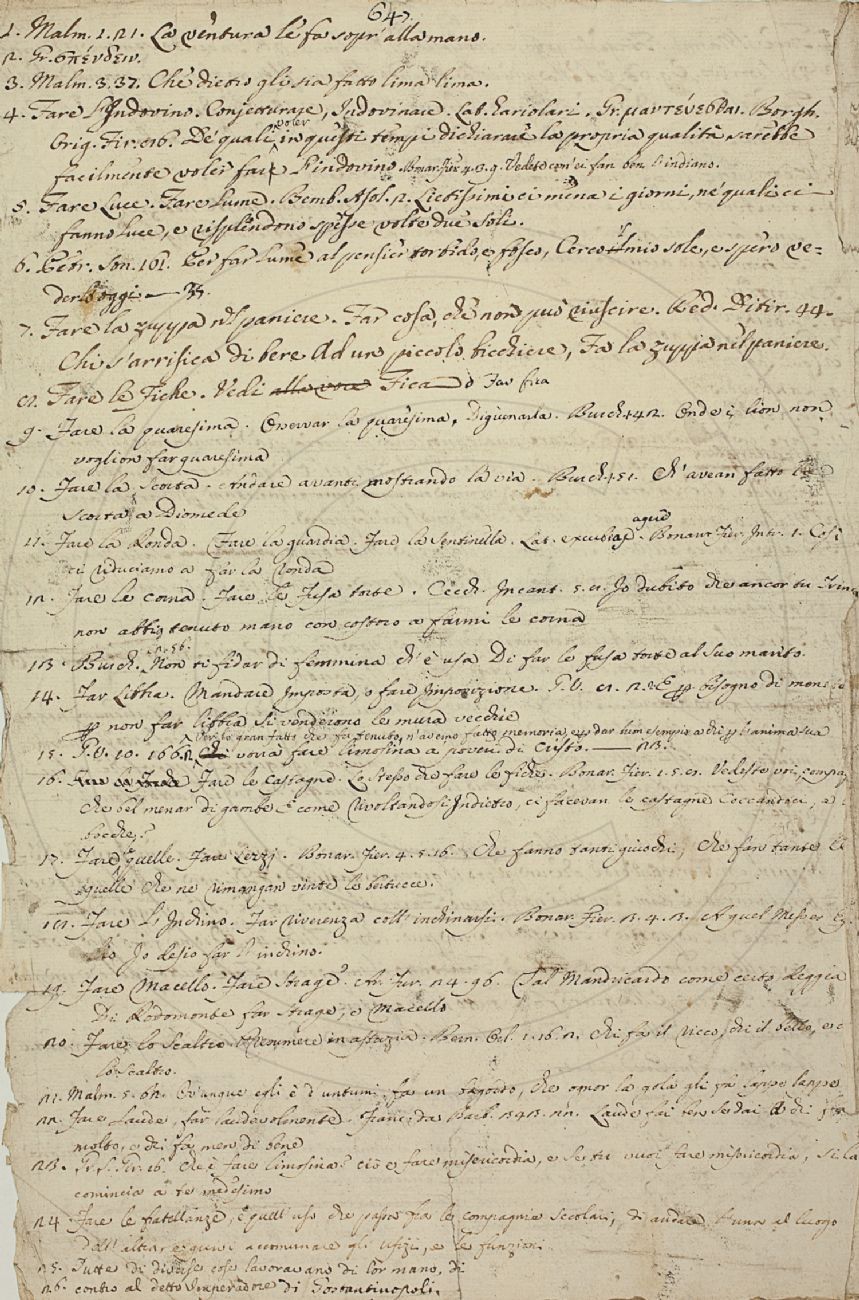 647.
1. Malm. 1. 21. La ventura le fa sopr' alla mano.
2. Gr. σπένδειν.
3. Malm. 3. 37. Che dietro gli sia fatto lima lima.
4. Fare l'Indovino. Conjetturare, Indovinare. Lat. hariolari. Gr. μαντεύεσθαι. Borgh.
Orig. Fir. 216. De' quali voler in questi tempi dichiarare la propria qualità sarebbe
facilmente voler fare l'indovino Bonar. Fier. 4. 3. 9. Vedete com' ei fan ben l'indiano.
5. Fare Luce. Fare Lume. Bemb. Asol. 2. Lietissimi ci mena i giorni, ne' quali ci
fanno luce, e risplendono spesse volte due Soli.
6. Petr. Son. 101. Per far lume al pensier torbido, e fosco, Cerco il mio sole, e spero ve=
derlo oggi —
7. Fare la zuppa nel paniere. Far cosa, che non può riuscire. Red. Ditir. 44.
Chi s'arrisica di bere Ad un piccolo bicchiere, Fa la zuppa nel paniere.
8. Fare le Fiche. Vedi alla voce Fica o Far fica
9. Fare la quaresima. Osservar la quaresima, Digiunarla. Burch. 142. Onde i lion non
voglion far quaresima
10. Fare la Scorta. Andare avanti mostrando la via. Burch. 151. Ch' avean fatto
scorta a Diomede
11. Fare la Ronda. Fare la guardia. Fare la Sentinella. Lat. excubias agere. Bonar. Fier. Intr. 1. Così
ci riduciamo a far la ronda
12. Fare le corna. Fare le fusa torte. Cecch. Incant. 5. 8. Io dubito che ancor tu
non abbi tenuto mano con costoro a farmi le corna
13. Burch. 2. 56. Non ti fidar di femmina ch' è usa Di far le fusa torte al suo marito.
14. Far Libbra. Mandare Imposta, o fare Imposizione. G. V. 8. 2. E per bisogno di
per non far libbra si venderono le mura vecchie
15. G. V. 10. 166. 2. Per lo gran fatto che fu tenuto, n'avemo fatto memoria, e per dar buon esempio a chi per l'anima sua
vorrà fare limosina a' poveri di Cristo.
16. Fare le castagne. Lo stesso che fare le fiche. Bonar. Fier. 1. 5. 8. Vedeste voi,
che bel menar di gambe E come rivoltandosi Indietro, ci facevan le castagne Coccandoci, e
bocche?
17. Fare quelle. Fare Lezzj. Bonar. Fier. 4. 5. 16. Che fanno tanti giuochi, Che fan tante
quelle Che ne rimangan vinte le bertucce.
18. Fare l'Inchino. Far riverenza coll' inchinarsi. Bonar. Fier. 3. 4. 3. A quel Messer
Io desio far l'inchino.
19. Fare Macello. Fare Strage. Ar. Fur. 24. 96. Tal Mandricardo come certo deggia
Di Rodomonte far strage, e macello
20. Fare lo Scaltro. Presumere in astuzia. Bern. Orl. 1. 16. 2. Chi fa il ricco, chi il bello, e
lo scaltro.
21. Malm. 5. 62. Ovunque egli è d'untumi, fa un bagordo, Che ognor la gola gli fa lappe lappe
22. Fare Laude, far laudevolmente. Franc. da Barb. 343. 22. Laude fai ben se dai
molto, e di fa men di bene
23. Fr. S. Gr. 16. Che è fare limosina? ciò è fare misericordia, e se tu vuoi fare misericordia, si la
comincia a te medesimo
24. Fare le fratellanze, è quell' uso che passa fra le compagnie secolari, di andare l'una al luogo
dell' altra e quivi accomunare gli ufizj, e le funzioni.
25. Tutte di diverse cose lavoravano di lor mano, di
26. contro al detto Imperadore di Gostantinopoli.